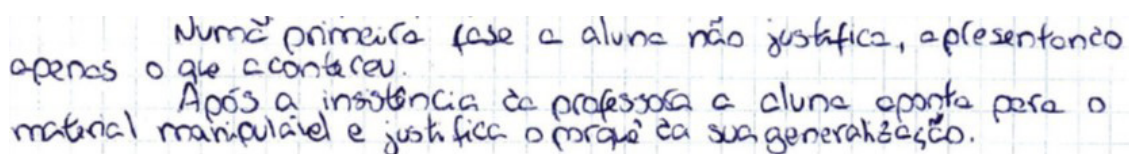 Numa primeira fase a aluna não justifica, apresentando
apenas o que aconteceu.
Após a insistência da professora a aluna aponta para o
material manipulável e justifica o porquê da sua generalização.